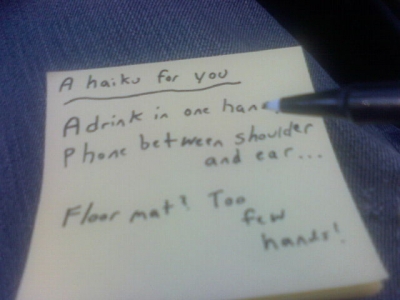 A haiku for you
A drink in one hand.
Phone between shoulder
and ear...
Floor mat? Too
few
hands!